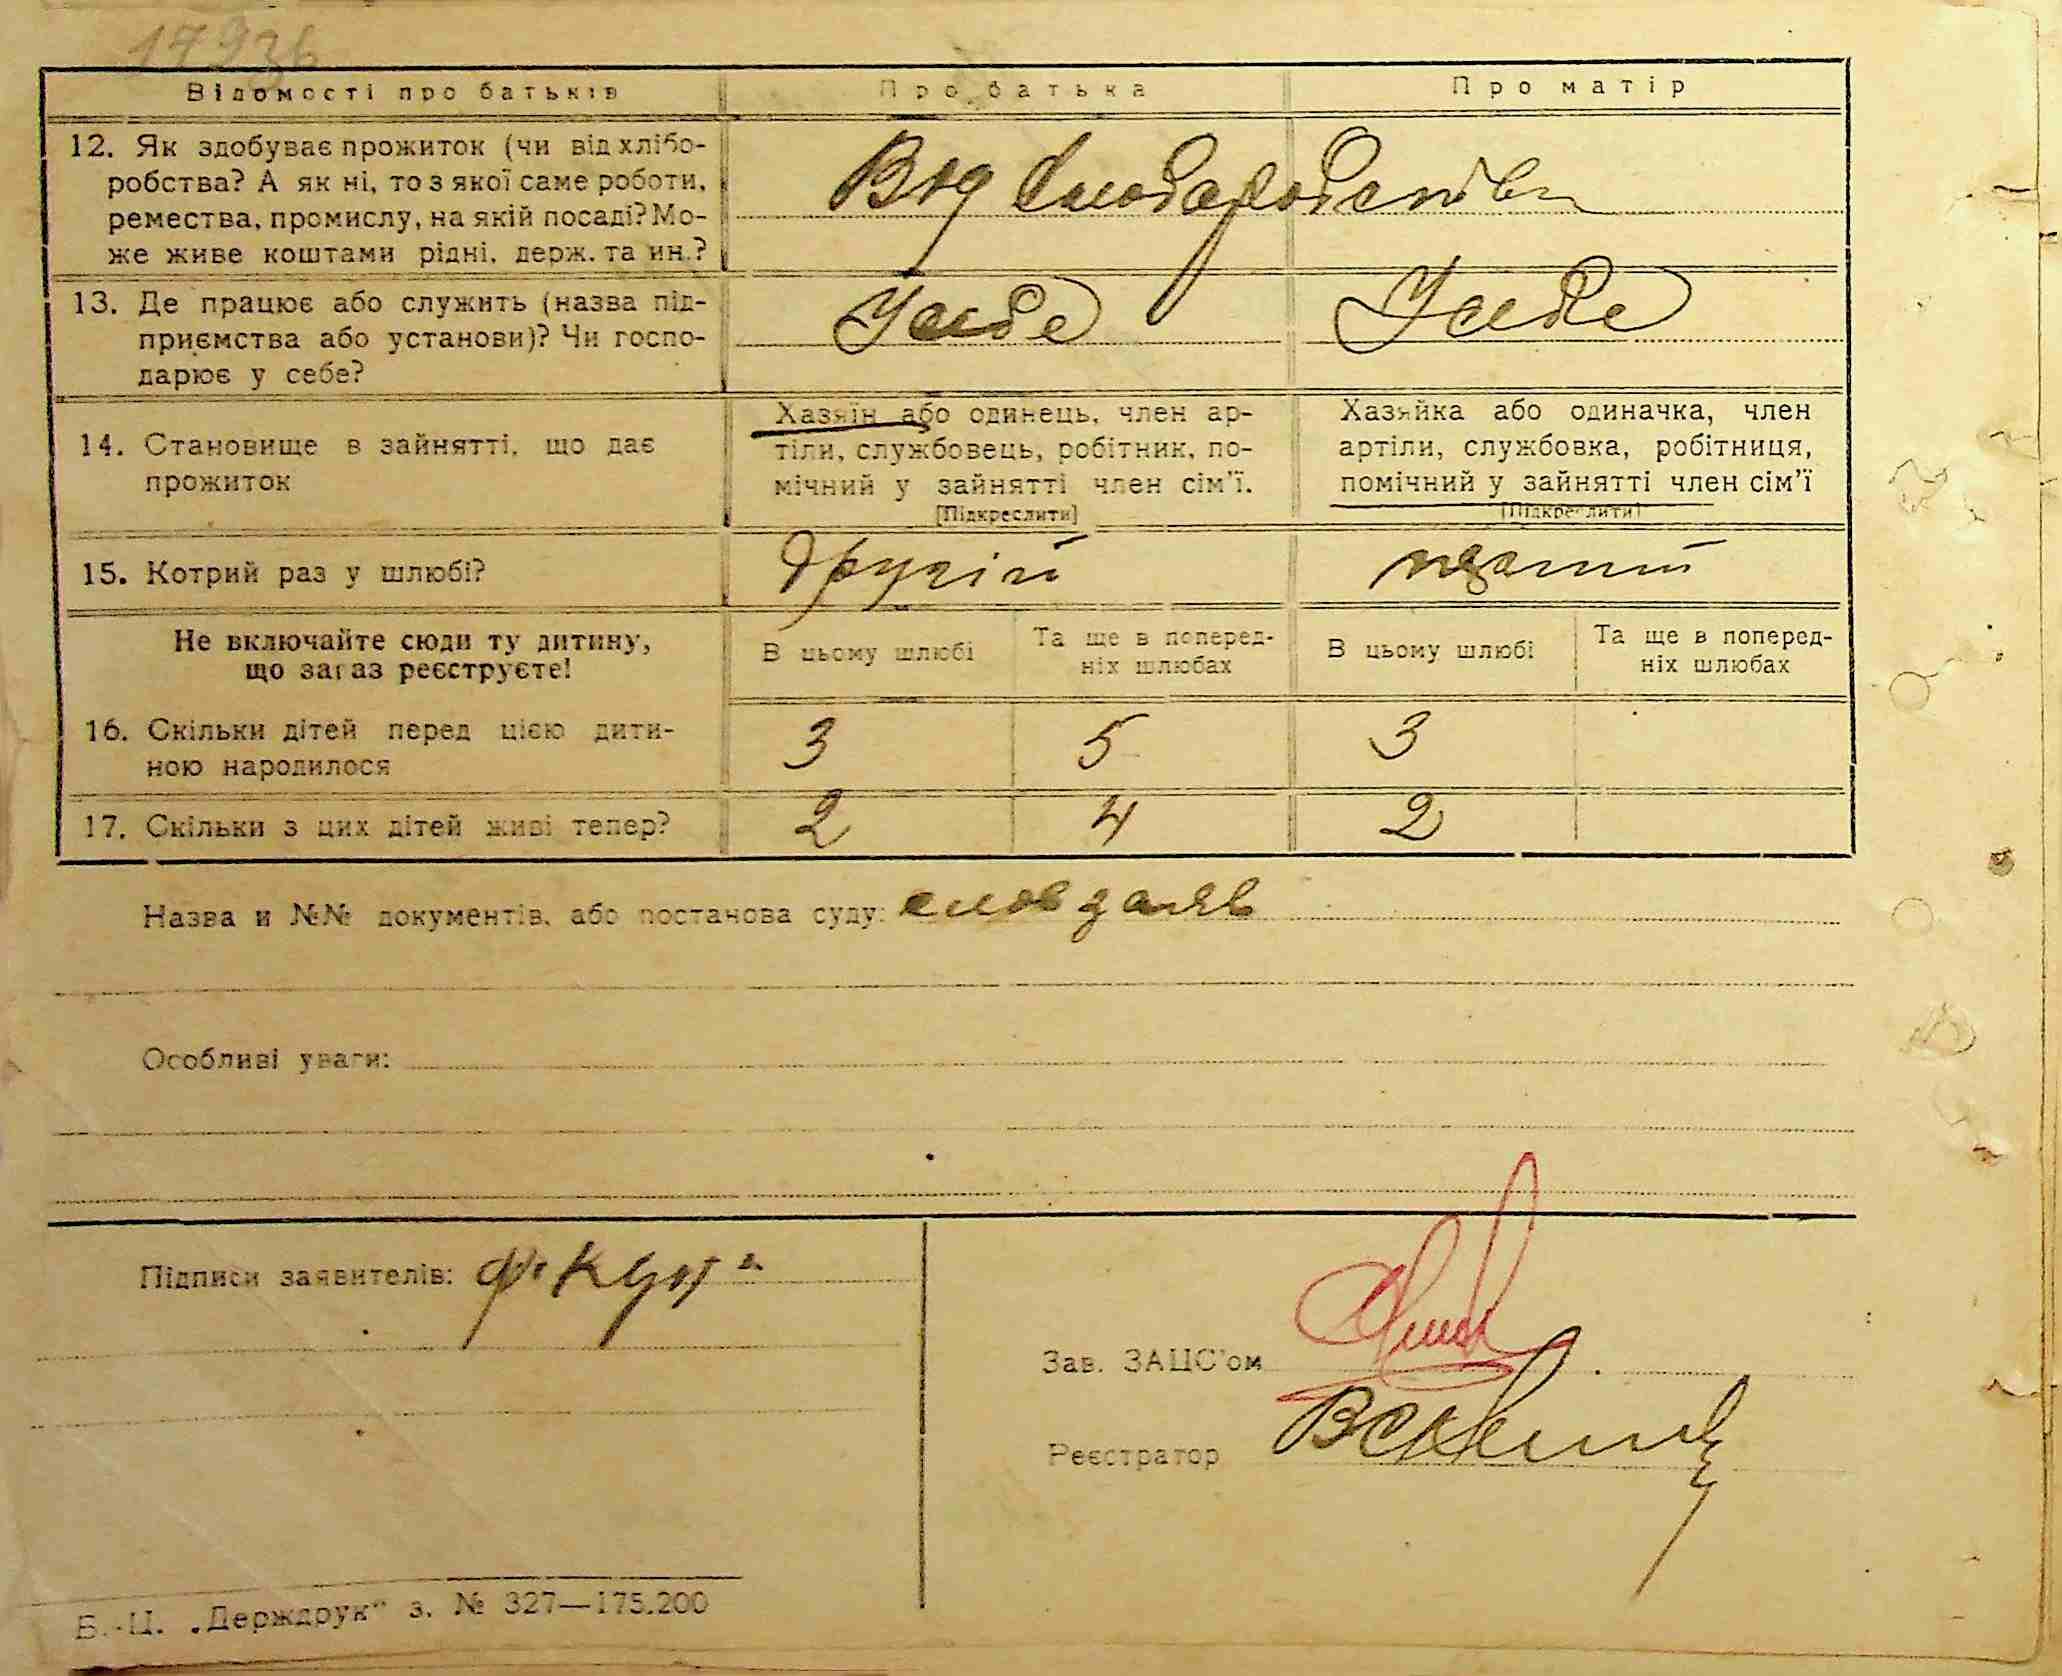 Відомості про батьків Про батька Про матір
12. Як здобуває прожиток (чи від хлібо-
робства? А як ні, то з якої саме роботи,
ремества, промислу, на якій посаді? Мо-
же живе коштами рідні, держ. та ин.?
Від
13. Де працює або служить (назва під-
приємства або установи)? Чи госпо-
дарює у себе?
У себе У себе
14. Становище в зайнятті, що дає
прожиток
Хазяїн або одинець, член ар-
тіли, службовець, робітник, по-
мічний у зайнятті член сім'ї.
[Підкреслити]
Хазяйка або одиначка, член
артіли, службовка, робітниця,
помічний у зайнятті член сім'ї
[Підкреслити]
15. Котрий раз у шлюбі? другій
Не включайте сюди ту дитину,
що зараз реєструєте!
В цьому шлюбі Та ще в поперед-
ніх шлюбах В цьому шлюбі Та ще в поперед-
ніх шлюбах
16. Скільки дітей перед цією дити-
ною народилося 3 5 3
17. Скільки з цих дітей живі тепер? 2 4 2
Назва и №№ документів, або постанова суду: слов заяв
Особливі уваги:
Підписи заявителів:
Зав. ЗАЦС'ом
Реєстратор
Б.-Ц. „Держдрук" з. № 327—175.200